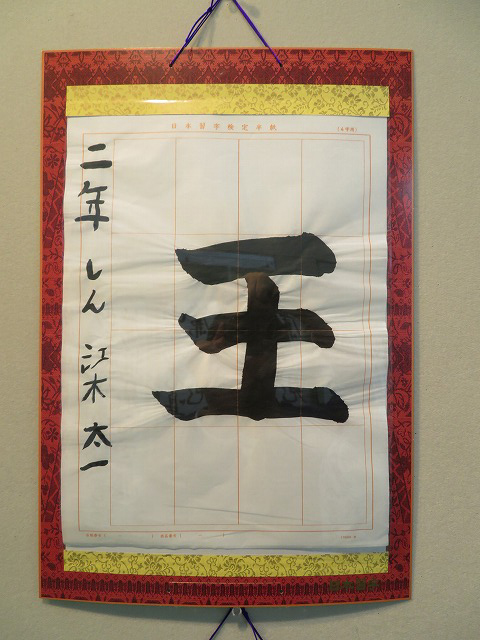 日本習字検定半紙
王
二年 しん 江木 太一